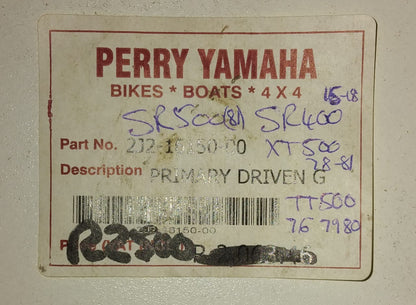 PERRY YAMAHA
BIKES * BOATS * 4 X 4
15-18
SR500(81) SR400
Part No. 2J2-16150-00 XT500
78-81
Description PRIMARY DRIVEN G
TT500
76 7980
R2500